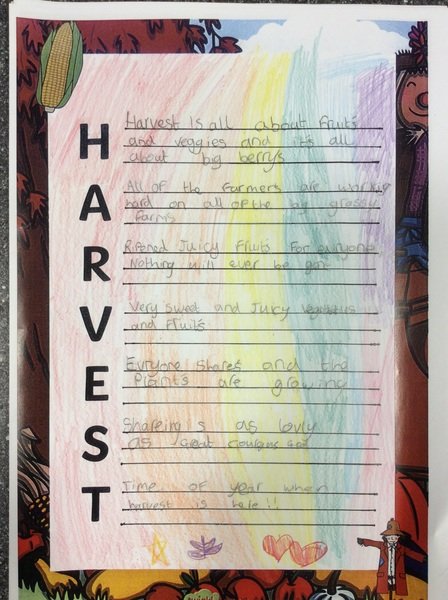 HARVEST
Harvest Is all about Fruits
and veggies and it's all
about big berrys
All of the Farmers are working
hard on all of the big grassy
Farms
Ripened Juicy Fruits For everyone
Nothing will ever be gon
Very sweet and Juicy
and Fruits
Evryone Shares and the
Plants are growing
Shareing is as lovly
as Great
Time of year when
harvest is here!!